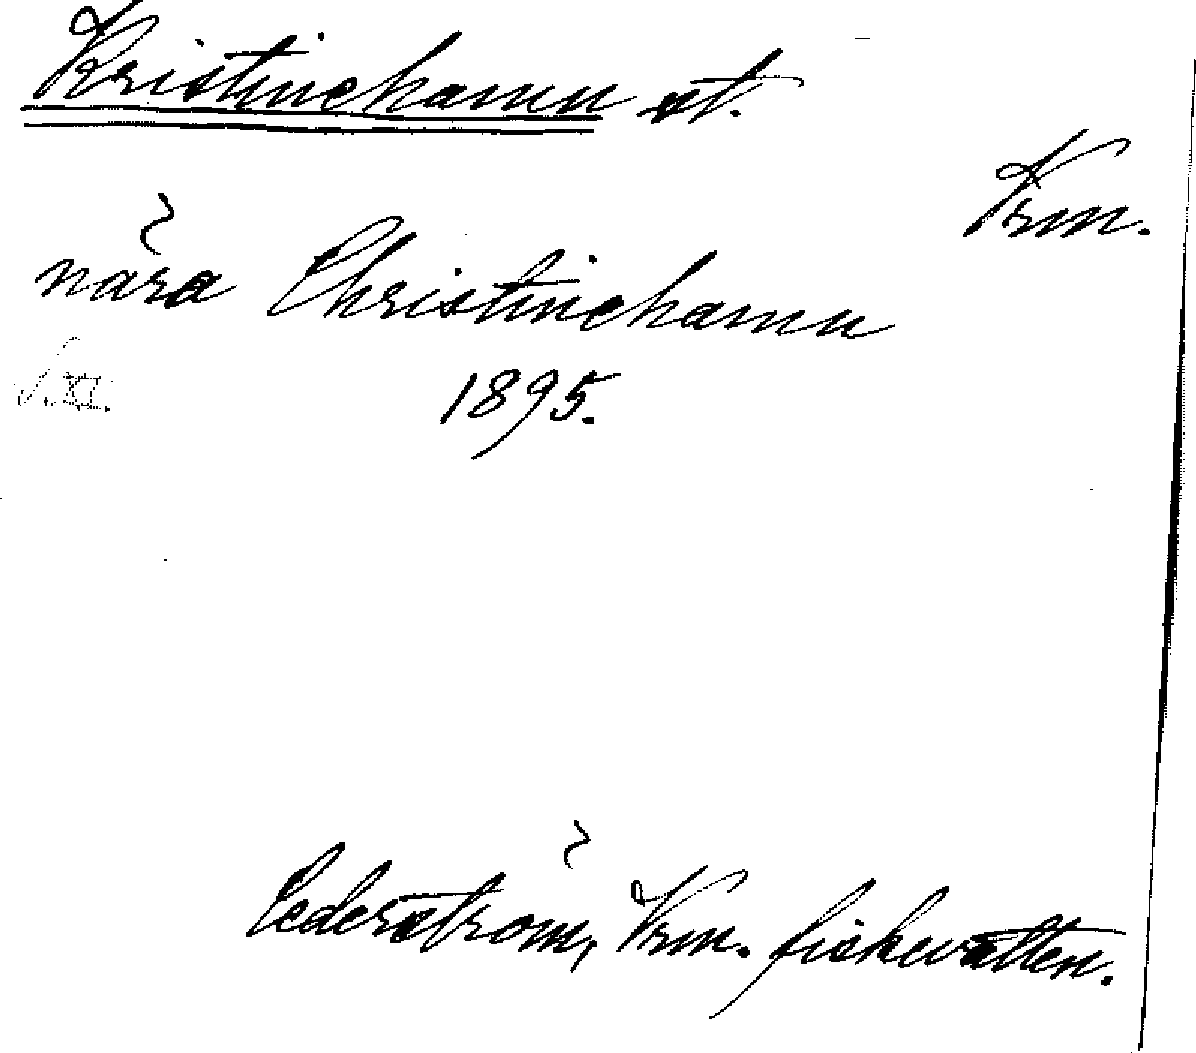 Kristinehamn st.
Vrm.
nära Christinehamn
1895.
Cederström, Vrm. fiskevatten.